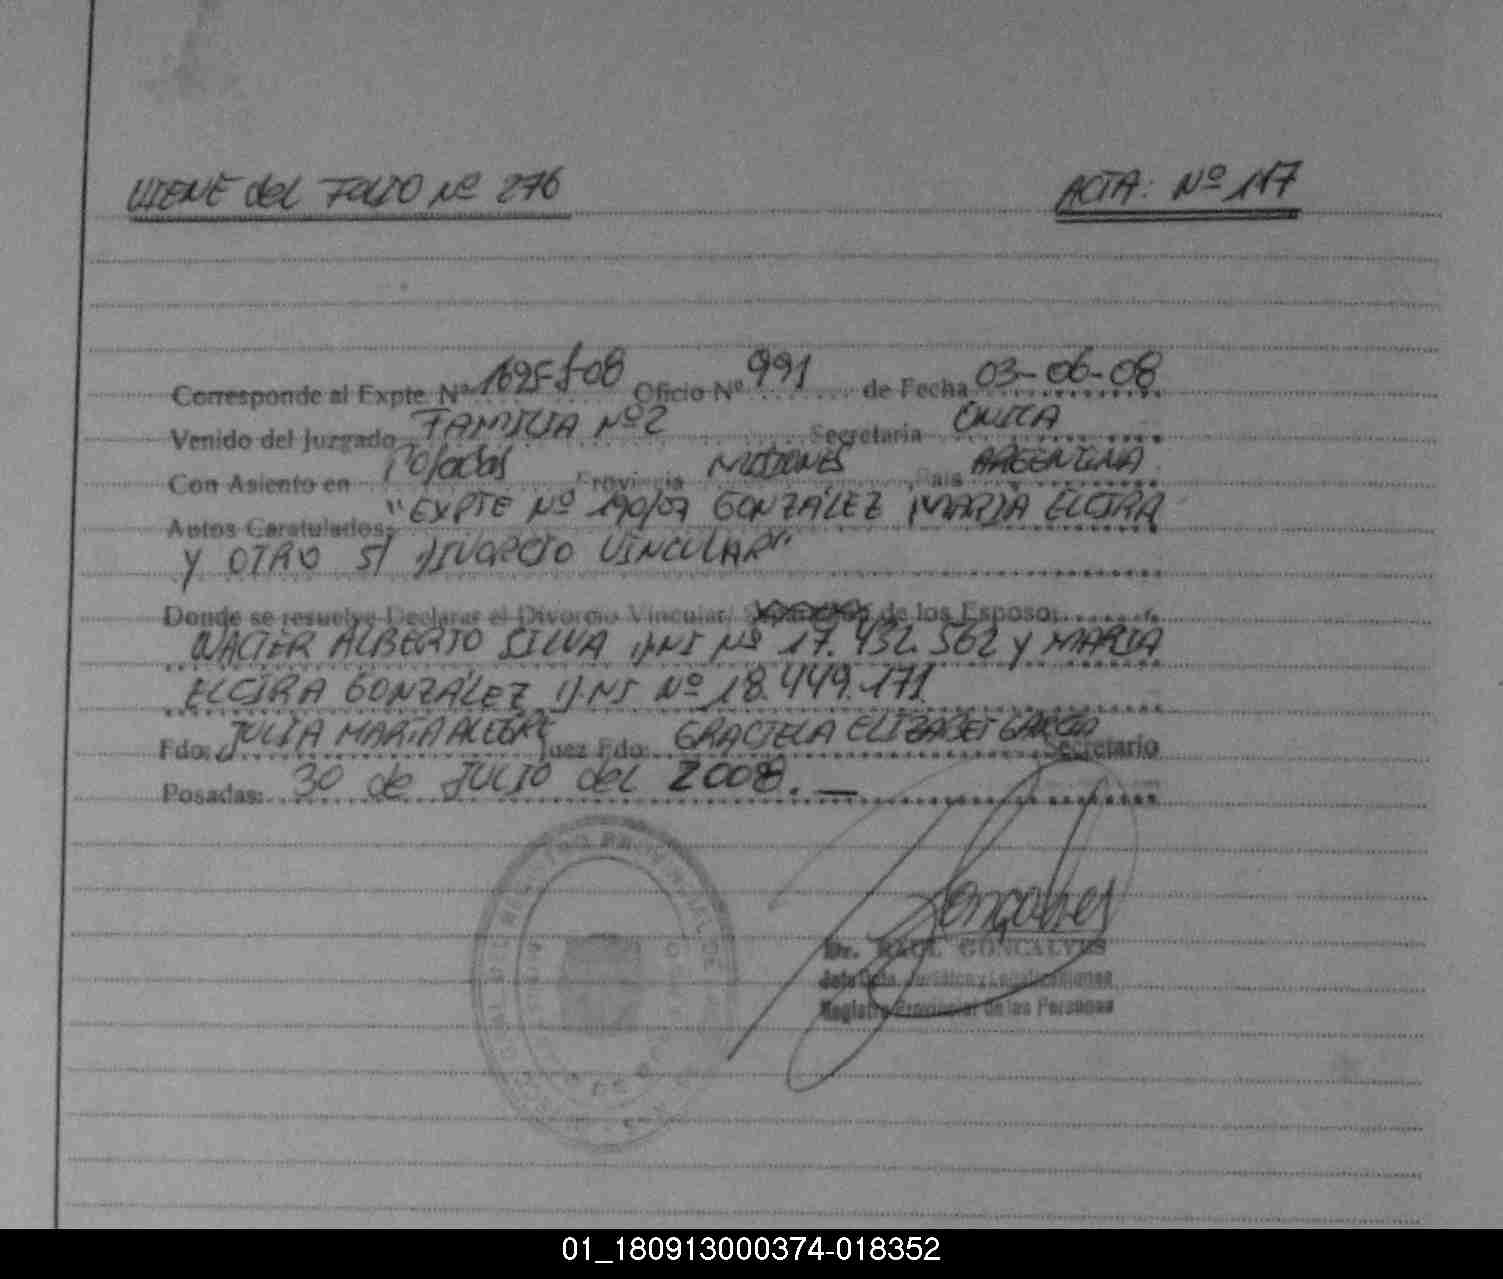 VIENE del FOLIO Nº 276 ACTA: Nº 117
Corresponde al Expte. Nº 08 Oficio Nº 991 de Fecha 03-06-08
Venido del Juzgado FAMILIA Nº 2 Secretaria ÚNICA
Con Asiento en Posadas Provincia MISIONES País ARGENTINA
Autos Caratulados: "EXPTE Nº 190/07 GONZÁLEZ MARIA ELCIRA
Y OTRO S/ DIVORCIO VINCULAR"
Donde se resuelve Declarar el Divorcio Vincular/ de los Esposo:
WALTER ALBERTO SILVA DNI Nº 17.432.562 y MARIA
ELCIRA GONZÁLEZ DNI Nº 18.449.171
Fdo: JULIA MARIA ALEGRE Juez Fdo: GRACIELA ELIZABET GARCIA Secretario
Posadas: 30 de JULIO del 2008.—
Dr. RAUL GONCALVES
Jefe Dpto. Jurídico y Legalizaciones
Registro Provincial de las Personas
01_180913000374-018352